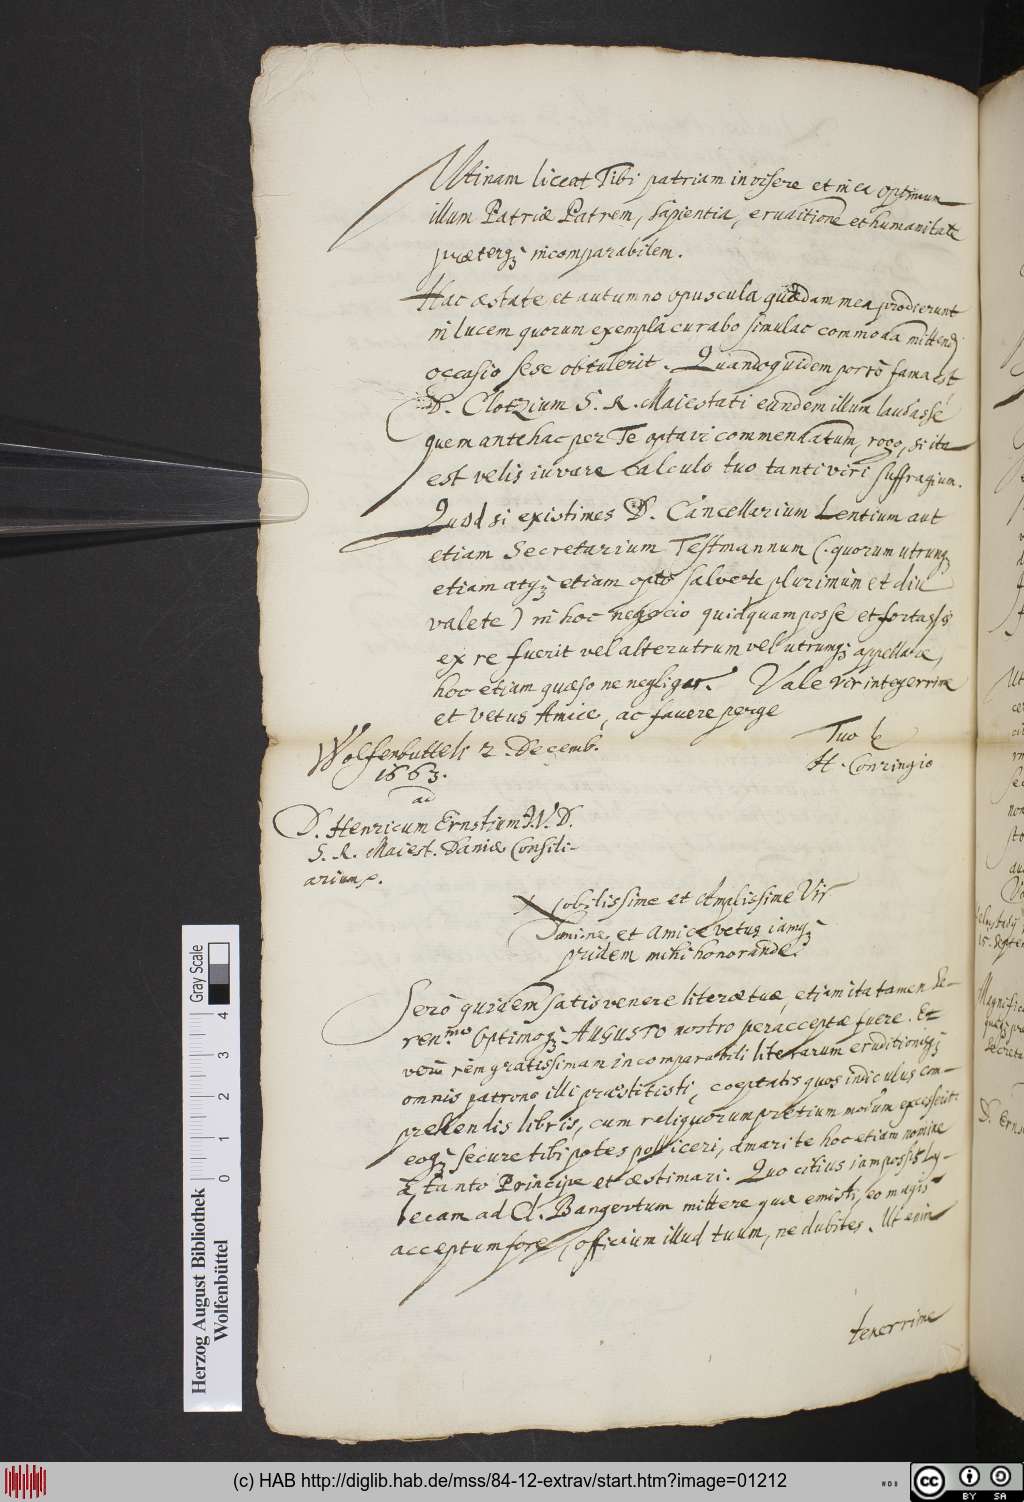 Utinam liceat Tibi patriam invisere et in ea optimum
illum Patriæ Patrem, sapientia, eruditione et humanitate
præterq₃ incomparabilem.
Hac æstate et autumno opuscula quædam mea prodierunt
in lucem quorum exempla curabo simulac commoda mittendj
occasio sese obtulerit. Quandoquidem porrò fama est
D. Clotzium S. R. Maiestati eundem illum laudasse
quem antehac per Te optavi commendatum, rogo, si ita
est velis iuvare calculo tuo tanti viri suffragium.
Quod si existimes D. Cancellarium Lentium aut
etiam Secretarium Testmannum (. quorum utrumq₃
etiam atq₃ etiam opto salvere plurimùm et diu
valete) in hoc negocio quidquam posse et fortassis
ex re fuerit vel alterutrum vel utrumq₃ appellare,
hoc etiam quæso ne negligas. Vale vir integerrime
et vetus Amice, ac favere perge
Tuo
H. Conringio
Wolfenbuttelj 2. Decemb.
1663.
ad
D. Henricum Ernstium I. V. D.
S. R. Maiest. Daniæ Consili-
arium
Nobilissime et Amplissime Vir
Domine et Amice vetus iamq₃
pridem mihi honorande.
Serò quidem satis venere literæ tuæ, etiam ita tamen Se-
ren.mo Optimoq₃ AUGUSTO nostro peracceptæ fuere. Et
verò rem gratissimam incomparabili literarum eruditionisq₃
omnis patrono illi præstitisti, coeptatis quos indiculus com-
prehendis libris, cum reliquorum pretium modum excesserit.
eoq₃ secure tibi potes polliceri, amari te hoc etiam nomine
à tanto Principe et æstimari. Quo citius iam possis Lu-
becam ad Cl. Bangertum mittere quæ emisti, eo magis
acceptum fore, officium illud tuum, ne dubites. Ut enim
tenerrime
Herzog August Bibliothek
Wolfenbüttel
0 1 2 3 4
Gray Scale
(c) HAB http://diglib.hab.de/mss/84-12-extrav/start.htm?image=01212
cc
BY SA